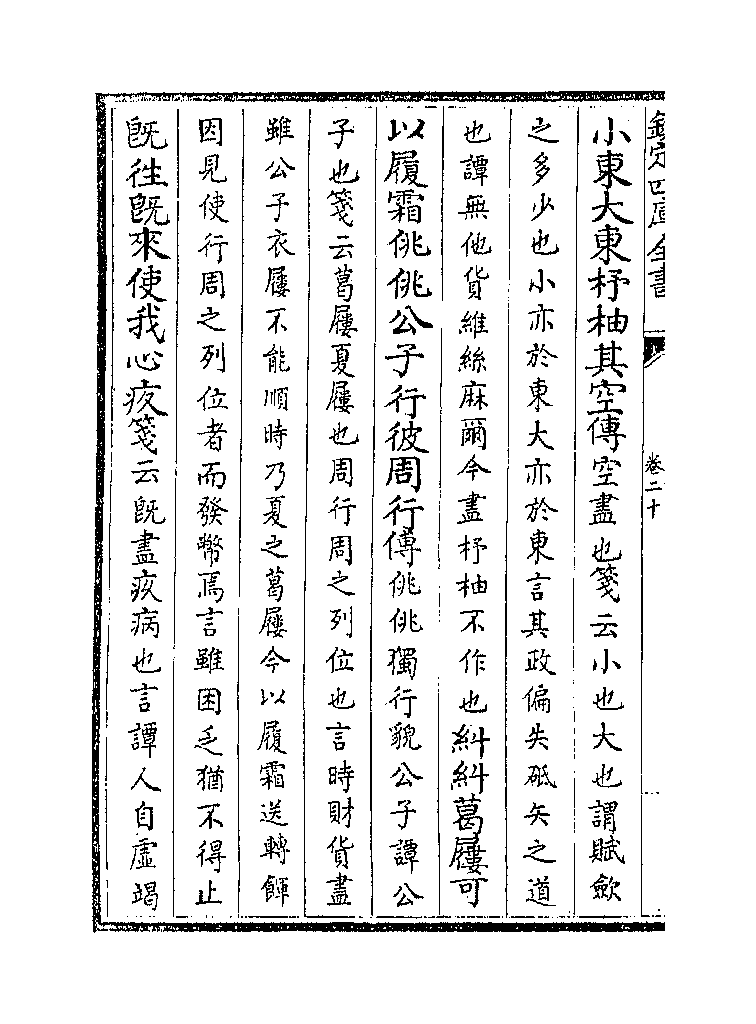 欽定四庫全書
卷二十
小東大東杼柚其空傳空盡也箋云小也大也謂賦歛
之多少也小亦於東大亦於東言其政偏失砥矢之道
也譚無他貨維絲麻爾今盡杼柚不作也糾糾葛屨可
以履霜佻佻公子行彼周行傳佻佻獨行貌公子譚公
子也箋云葛屨夏屨也周行周之列位也言時財貨盡
雖公子衣屨不能順時乃夏之葛屨今以履霜送轉餫
因見使行周之列位者而發幣焉言雖困乏猶不得止
旣徃旣來使我心疚箋云旣盡疚病也言譚人自虛竭